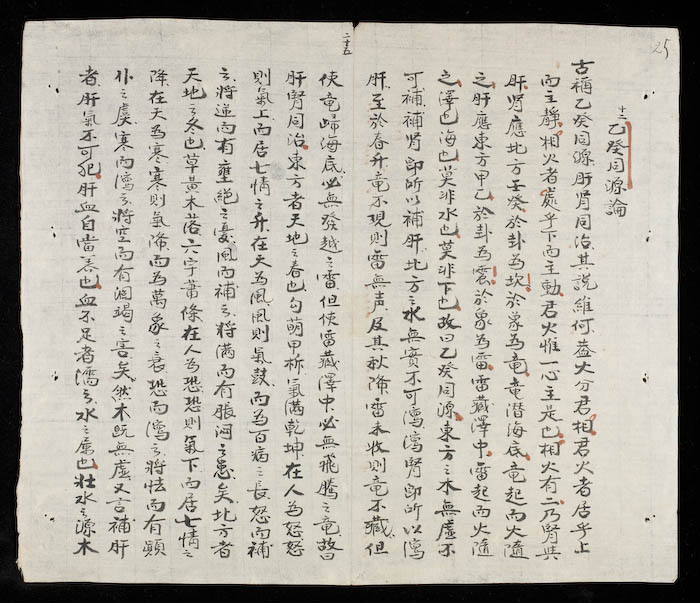 25
十二 乙癸同源論
古稱乙癸同源肝肾同治其說維何盖火分君相君火者居乎上
而主靜相火者處乎下而主動君火惟一心主是也相火有二乃腎與
肝肾應北方壬癸於卦為坎於象為竜竜潛海底竜起而火隨
之肝應東方甲乙於卦為震於象為雷雷藏澤中雷起而火隨
之澤也海也莫非水也莫非下也故曰乙癸同源東方之木無虛不
可補補肾即所以補肝北方之水無實不可瀉瀉肾即所以瀉
肝至於春升竜不現則雷無声及其秋降雷未收則竜不藏但
二十五
使竜歸海底必無發越之雷但使雷藏澤中必無飛騰之竜故曰
肝腎同治東方者天地之春也勾萌甲柝氣滿乾坤在人為怒怒
則氣上而居七情之升在天為風風則氣鼓而為百病之長怒而補
之將逆而有壅絕之憂風而補之將满而有脹悶之患矣北方者
天地之冬也草黃木落六字蕭條在人為恐恐則氣下而居七情之
降在天為寒寒則氣而為萬象之衰恐而瀉之將怯而有顛
仆之虞寒而瀉之將空而有涸竭之害矣然木既無虛又言補肝
者肝氣不可犯肝血自當养也血不足者濡之水之屬也壯水之源木